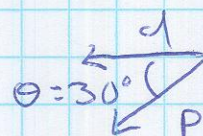 d
θ = 30°
P